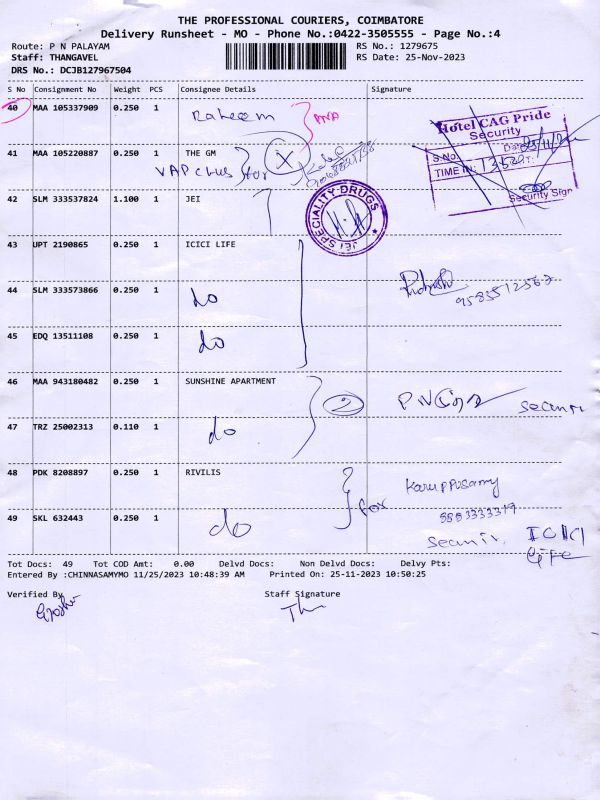 THE PROFESSIONAL COURIERS, COIMBATORE
Delivery Runsheet - MO - Phone No.:0422-3505555 - Page No.:4
Route: P N PALAYAM
RS No.: 1279675
Staff: THANGAVEL
RS Date: 25-Nov-2023
DRS No.: DCJB127967504
S No Consignment No Weight PCS Consignee Details Signature
40 MAA 105337909 0.250 1 Raheem
Hotel CAG Pride
Security
S.No. Date
TIME IN:
Security Sign
41 MAA 105220887 0.250 1 THE GM
for
42 SLM 333537824 1.100 1 JEI
JEI SPECIALITY DRUGS
43 UPT 2190865 0.250 1 ICICI LIFE
44 SLM 333573866 0.250 1 do
45 EDQ 13511108 0.250 1 do
46 MAA 943180482 0.250 1 SUNSHINE APARTMENT
2
47 TRZ 25002313 0.110 1 do
48 PDK 8208897 0.250 1 RIVILIS
for
Karuppusamy
49 SKL 632443 0.250 1 do
ICICI
Life
Tot Docs: 49 Tot COD Amt: 0.00 Delvd Docs: Non Delvd Docs: Delvy Pts:
Entered By :CHINNASAMYMO 11/25/2023 10:48:39 AM Printed On: 25-11-2023 10:50:25
Verified By Staff Signature